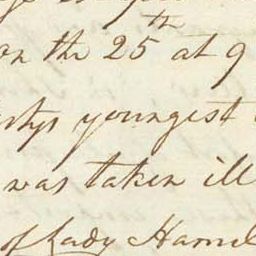 on the 25th at 9
youngest
was taken ill
of Lady Hamil